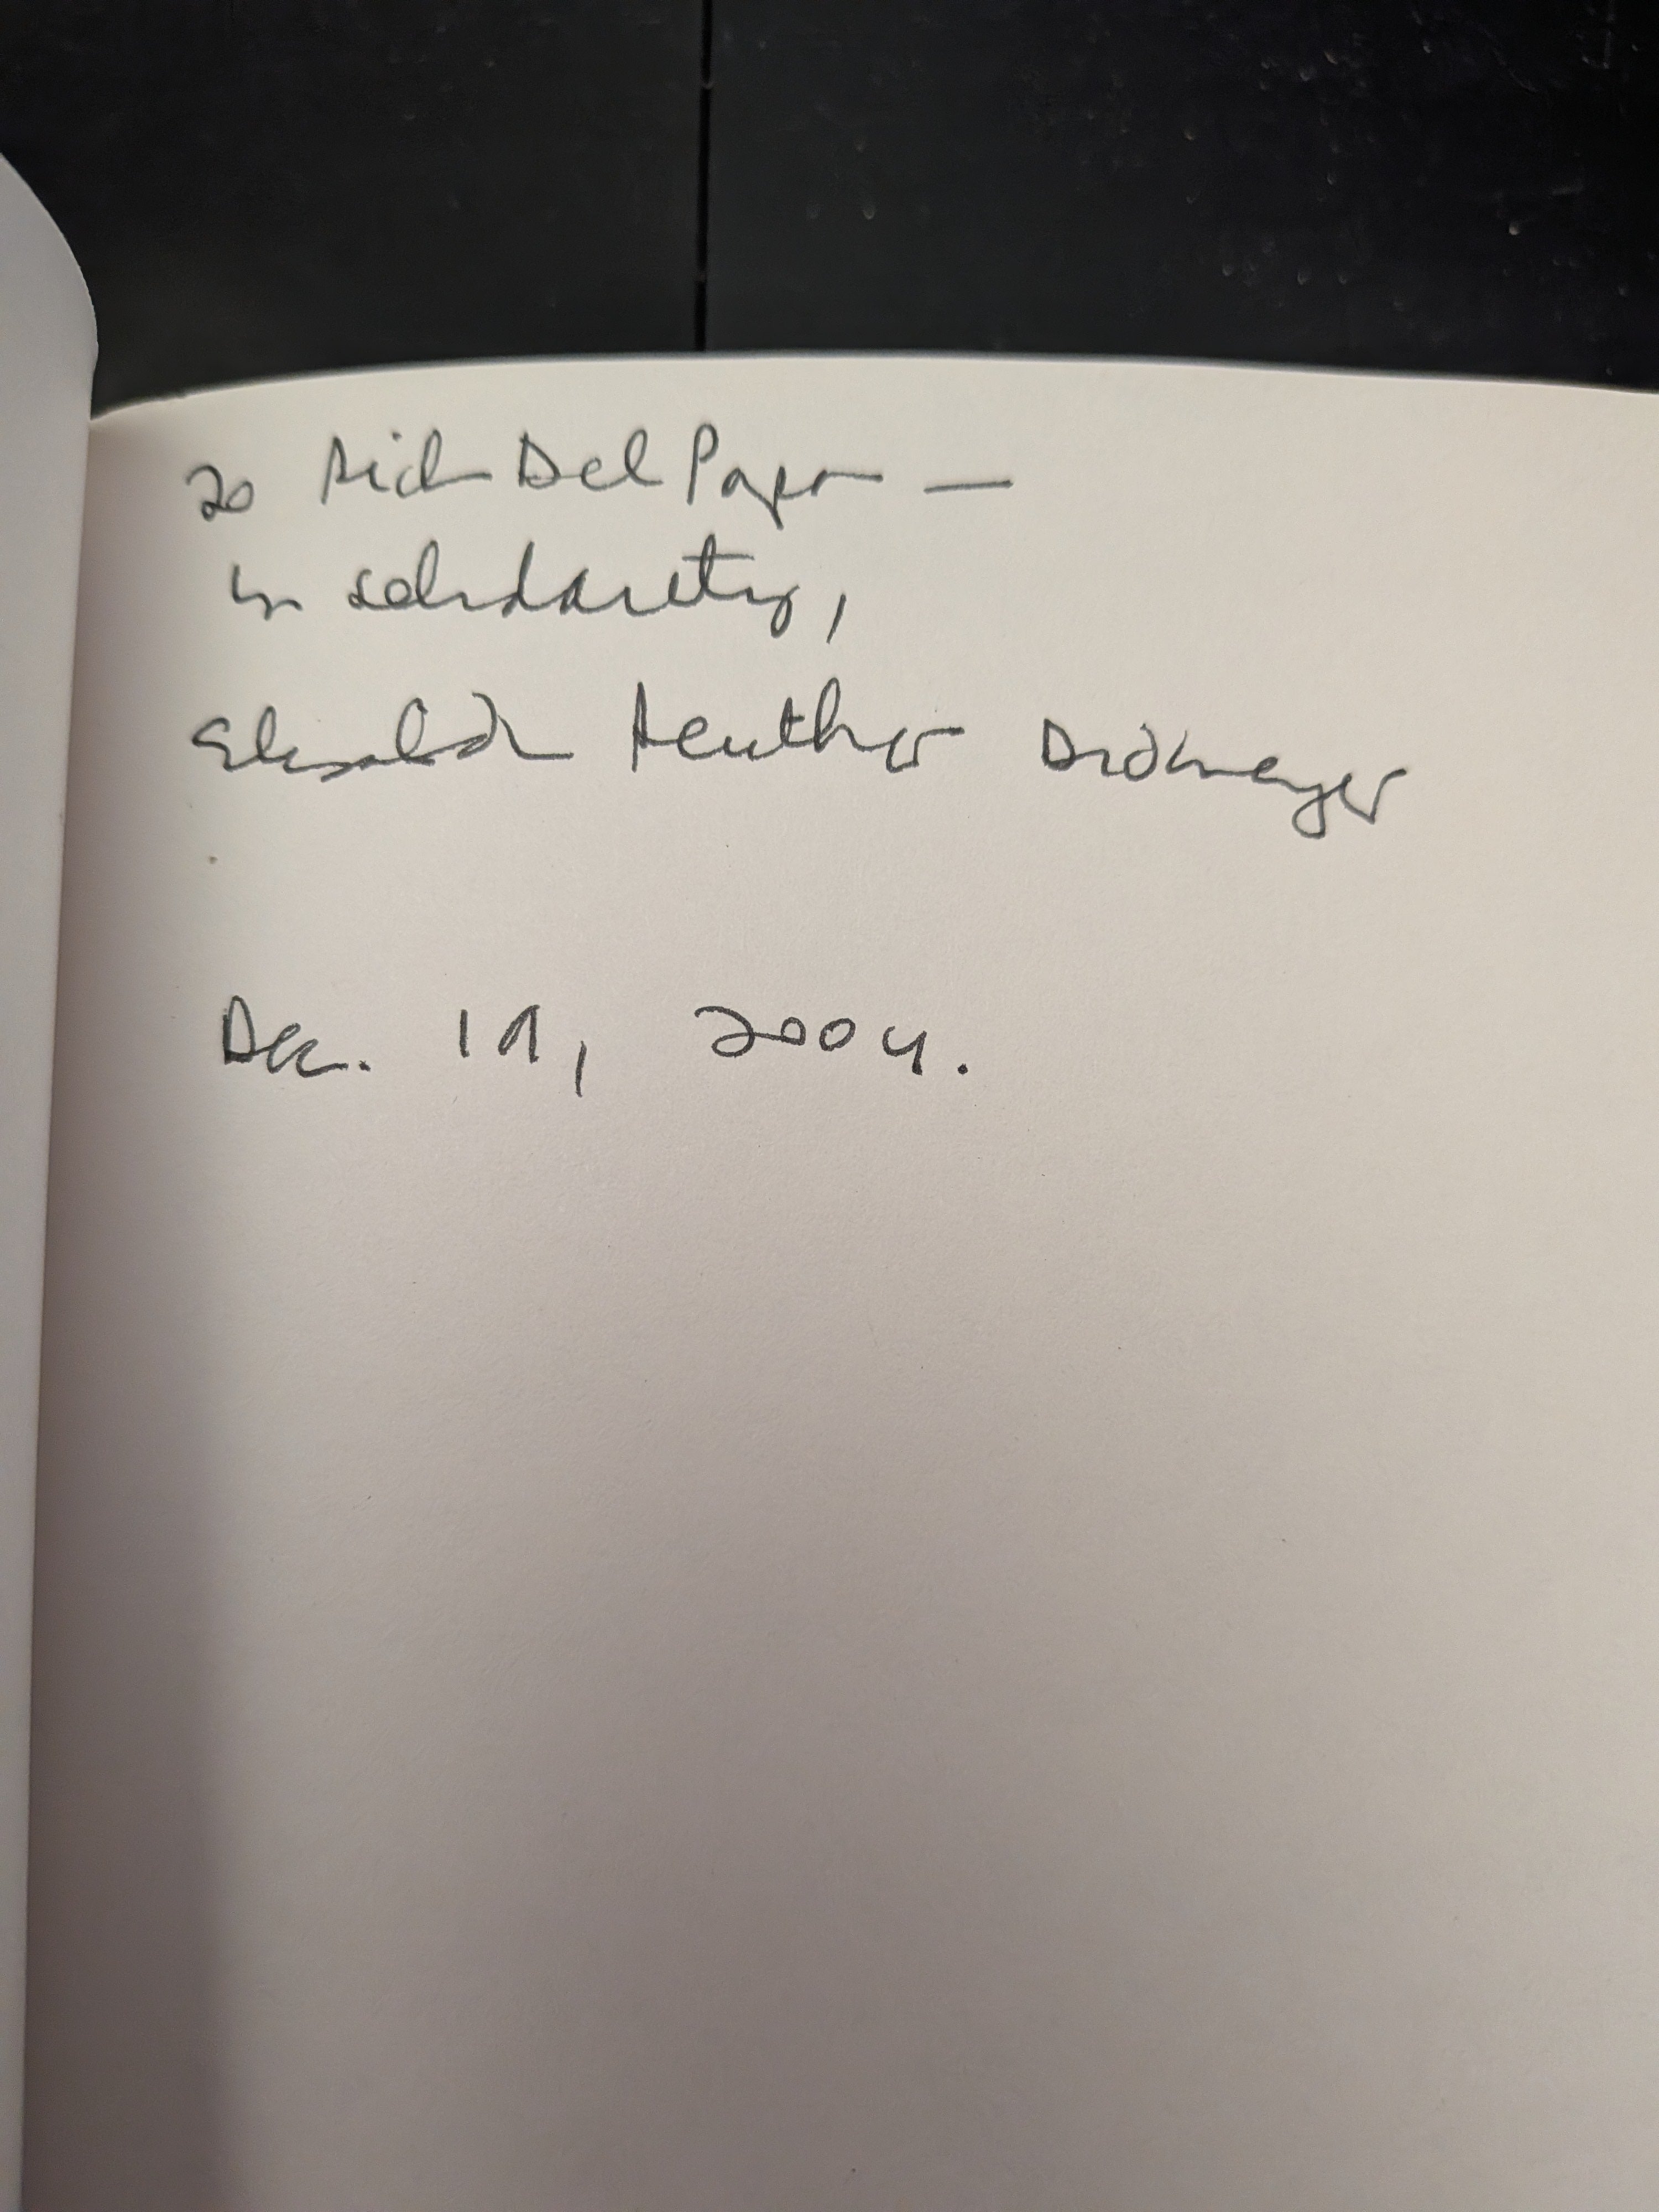 To Rich Del Papa —
in solidarity,
Elisabeth Reuther Dickmeyer
Dec. 19, 2004.